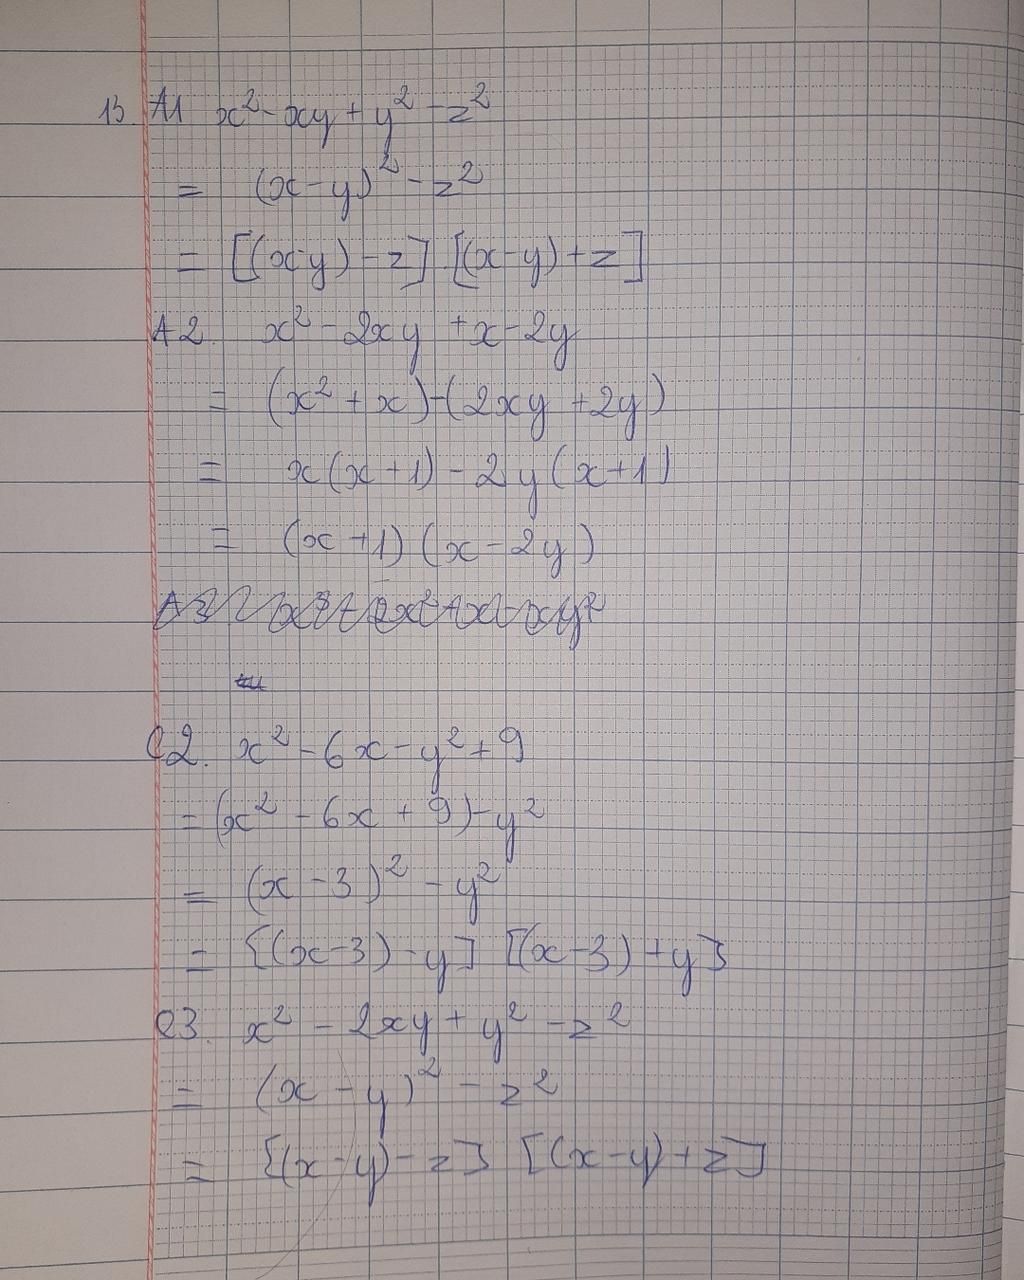 13. A1 x² - xy + y² - z²
= (x - y)² - z²
= [(x-y) - z] [(x-y) + z]
A2. x² - 2xy + x - 2y
= (x² + x) - (2xy + 2y)
= x(x + 1) - 2y(x + 1)
= (x + 1) (x - 2y)
C2. x² - 6x - y² + 9
= (x² - 6x + 9) - y²
= (x - 3)² - y²
= [(x-3) - y] [(x-3) + y]
C3. x² - 2xy + y² - z²
= (x - y)² - z²
= [(x-y) - z] [(x-y) + z]